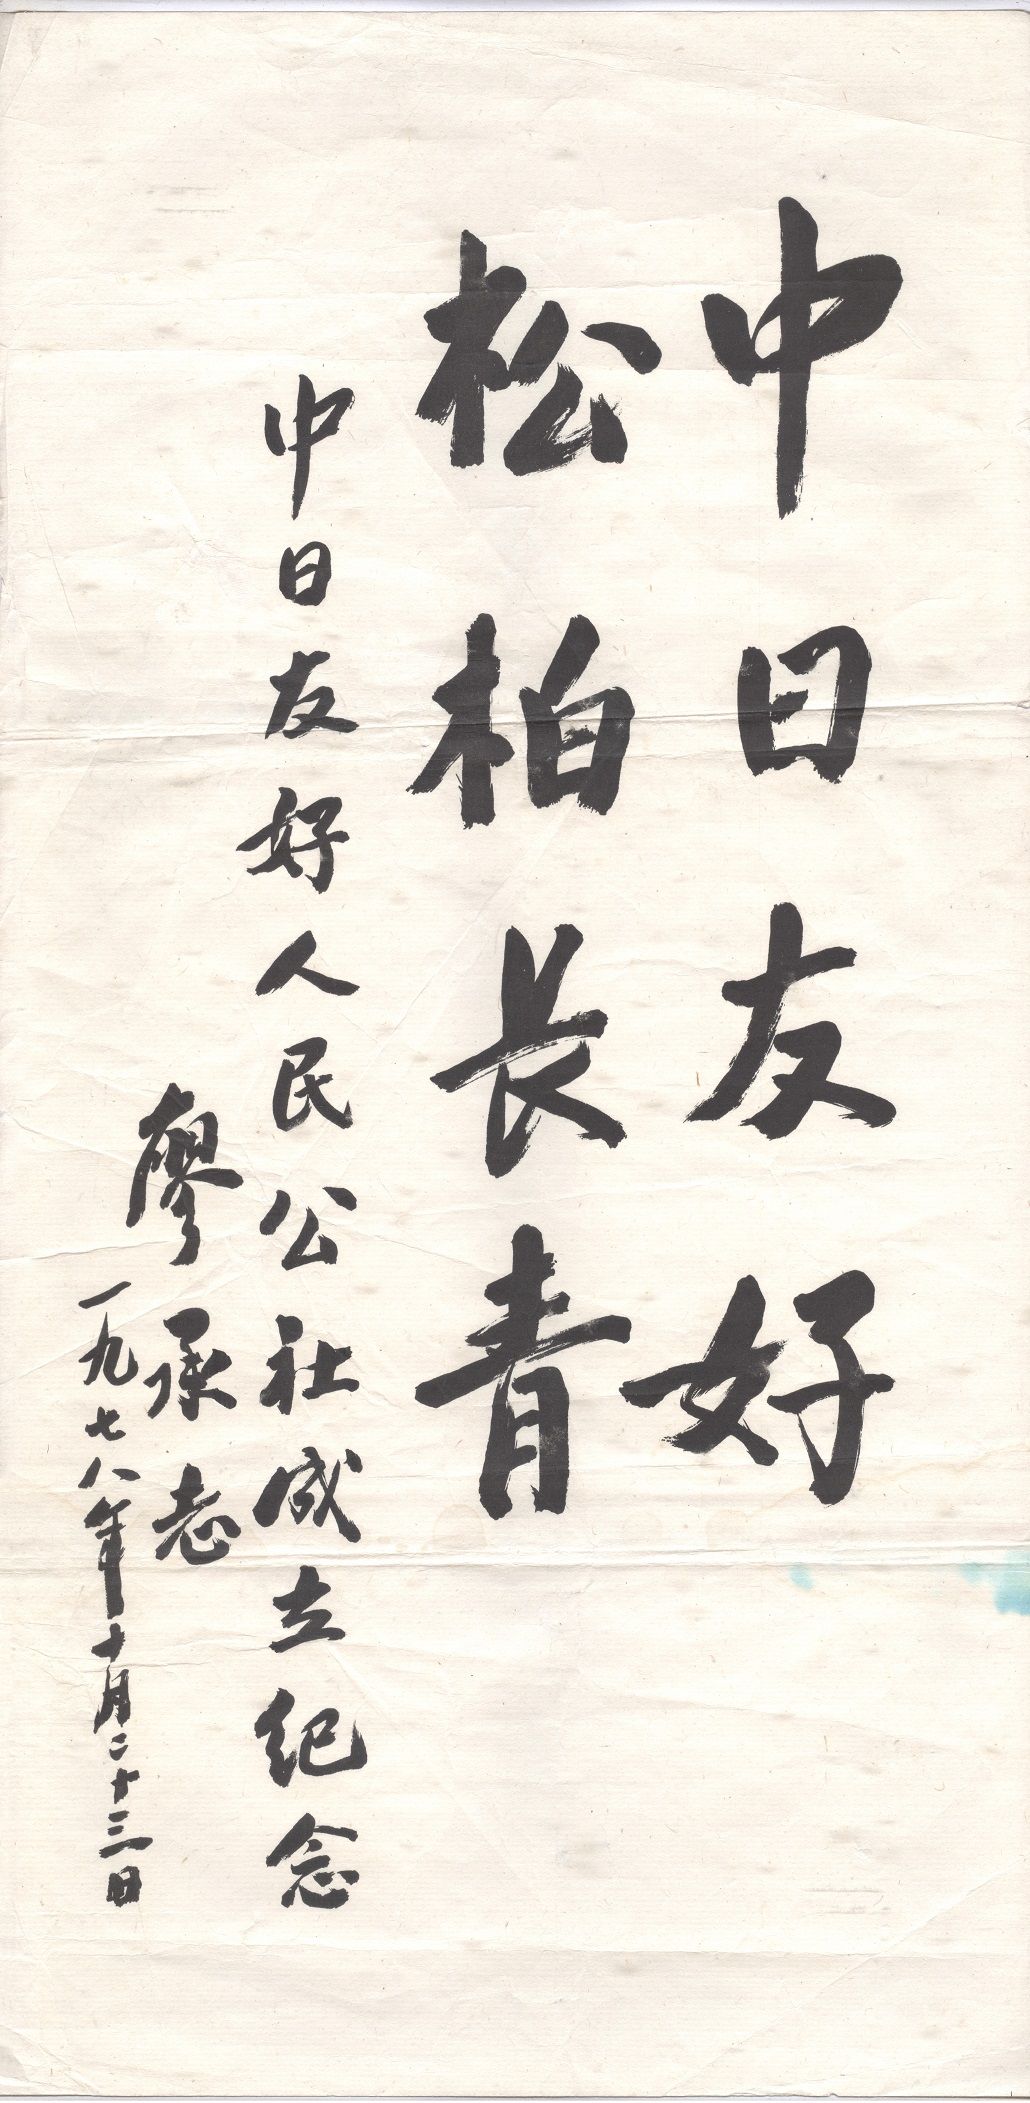 中日友好
松柏长青
中日友好人民公社成立纪念
廖承志
一九七八年十月二十三日